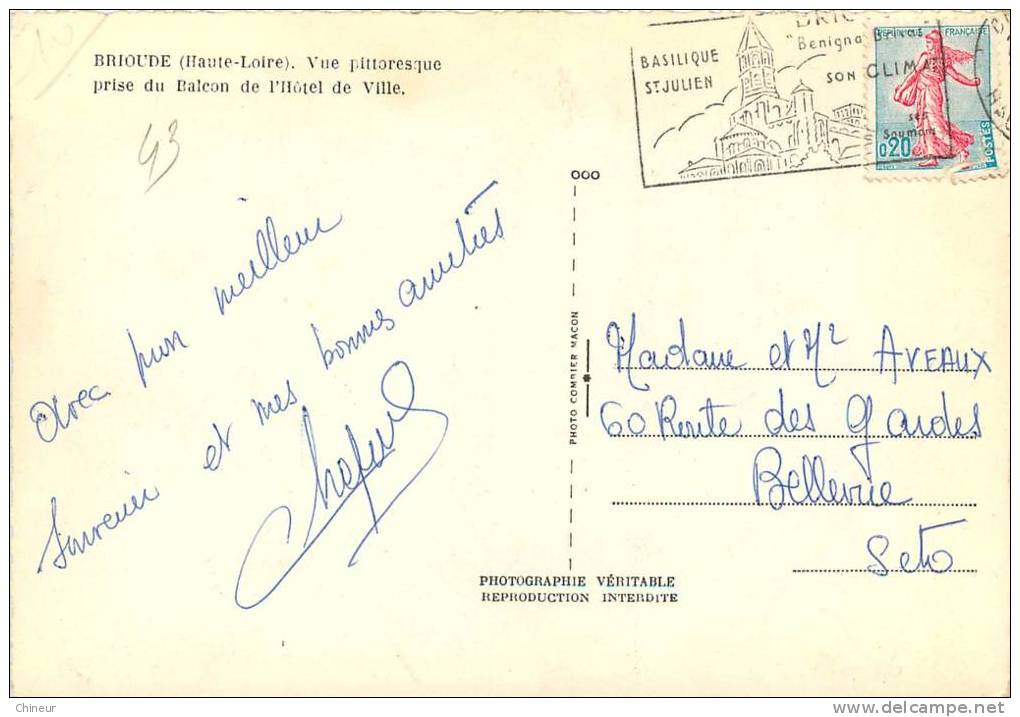 BRIOUDE (Haute-Loire). Vue pittoresque
prise du Balcon de l'Hôtel de Ville.
43
BASILIQUE
ST JULIEN
"Benigna
SON CLIMA
RÉPUBLIQUE FRANÇAISE
0,20
POSTES
Avec mon meilleur
souvenir et mes bonnes amitiés
000
PHOTO COMBIER MACON
Madame et Mr AVEAUX
60 Route des Gardes
Bellevue
S et O
PHOTOGRAPHIE VÉRITABLE
REPRODUCTION INTERDITE
Chineur
www.delcampe.net